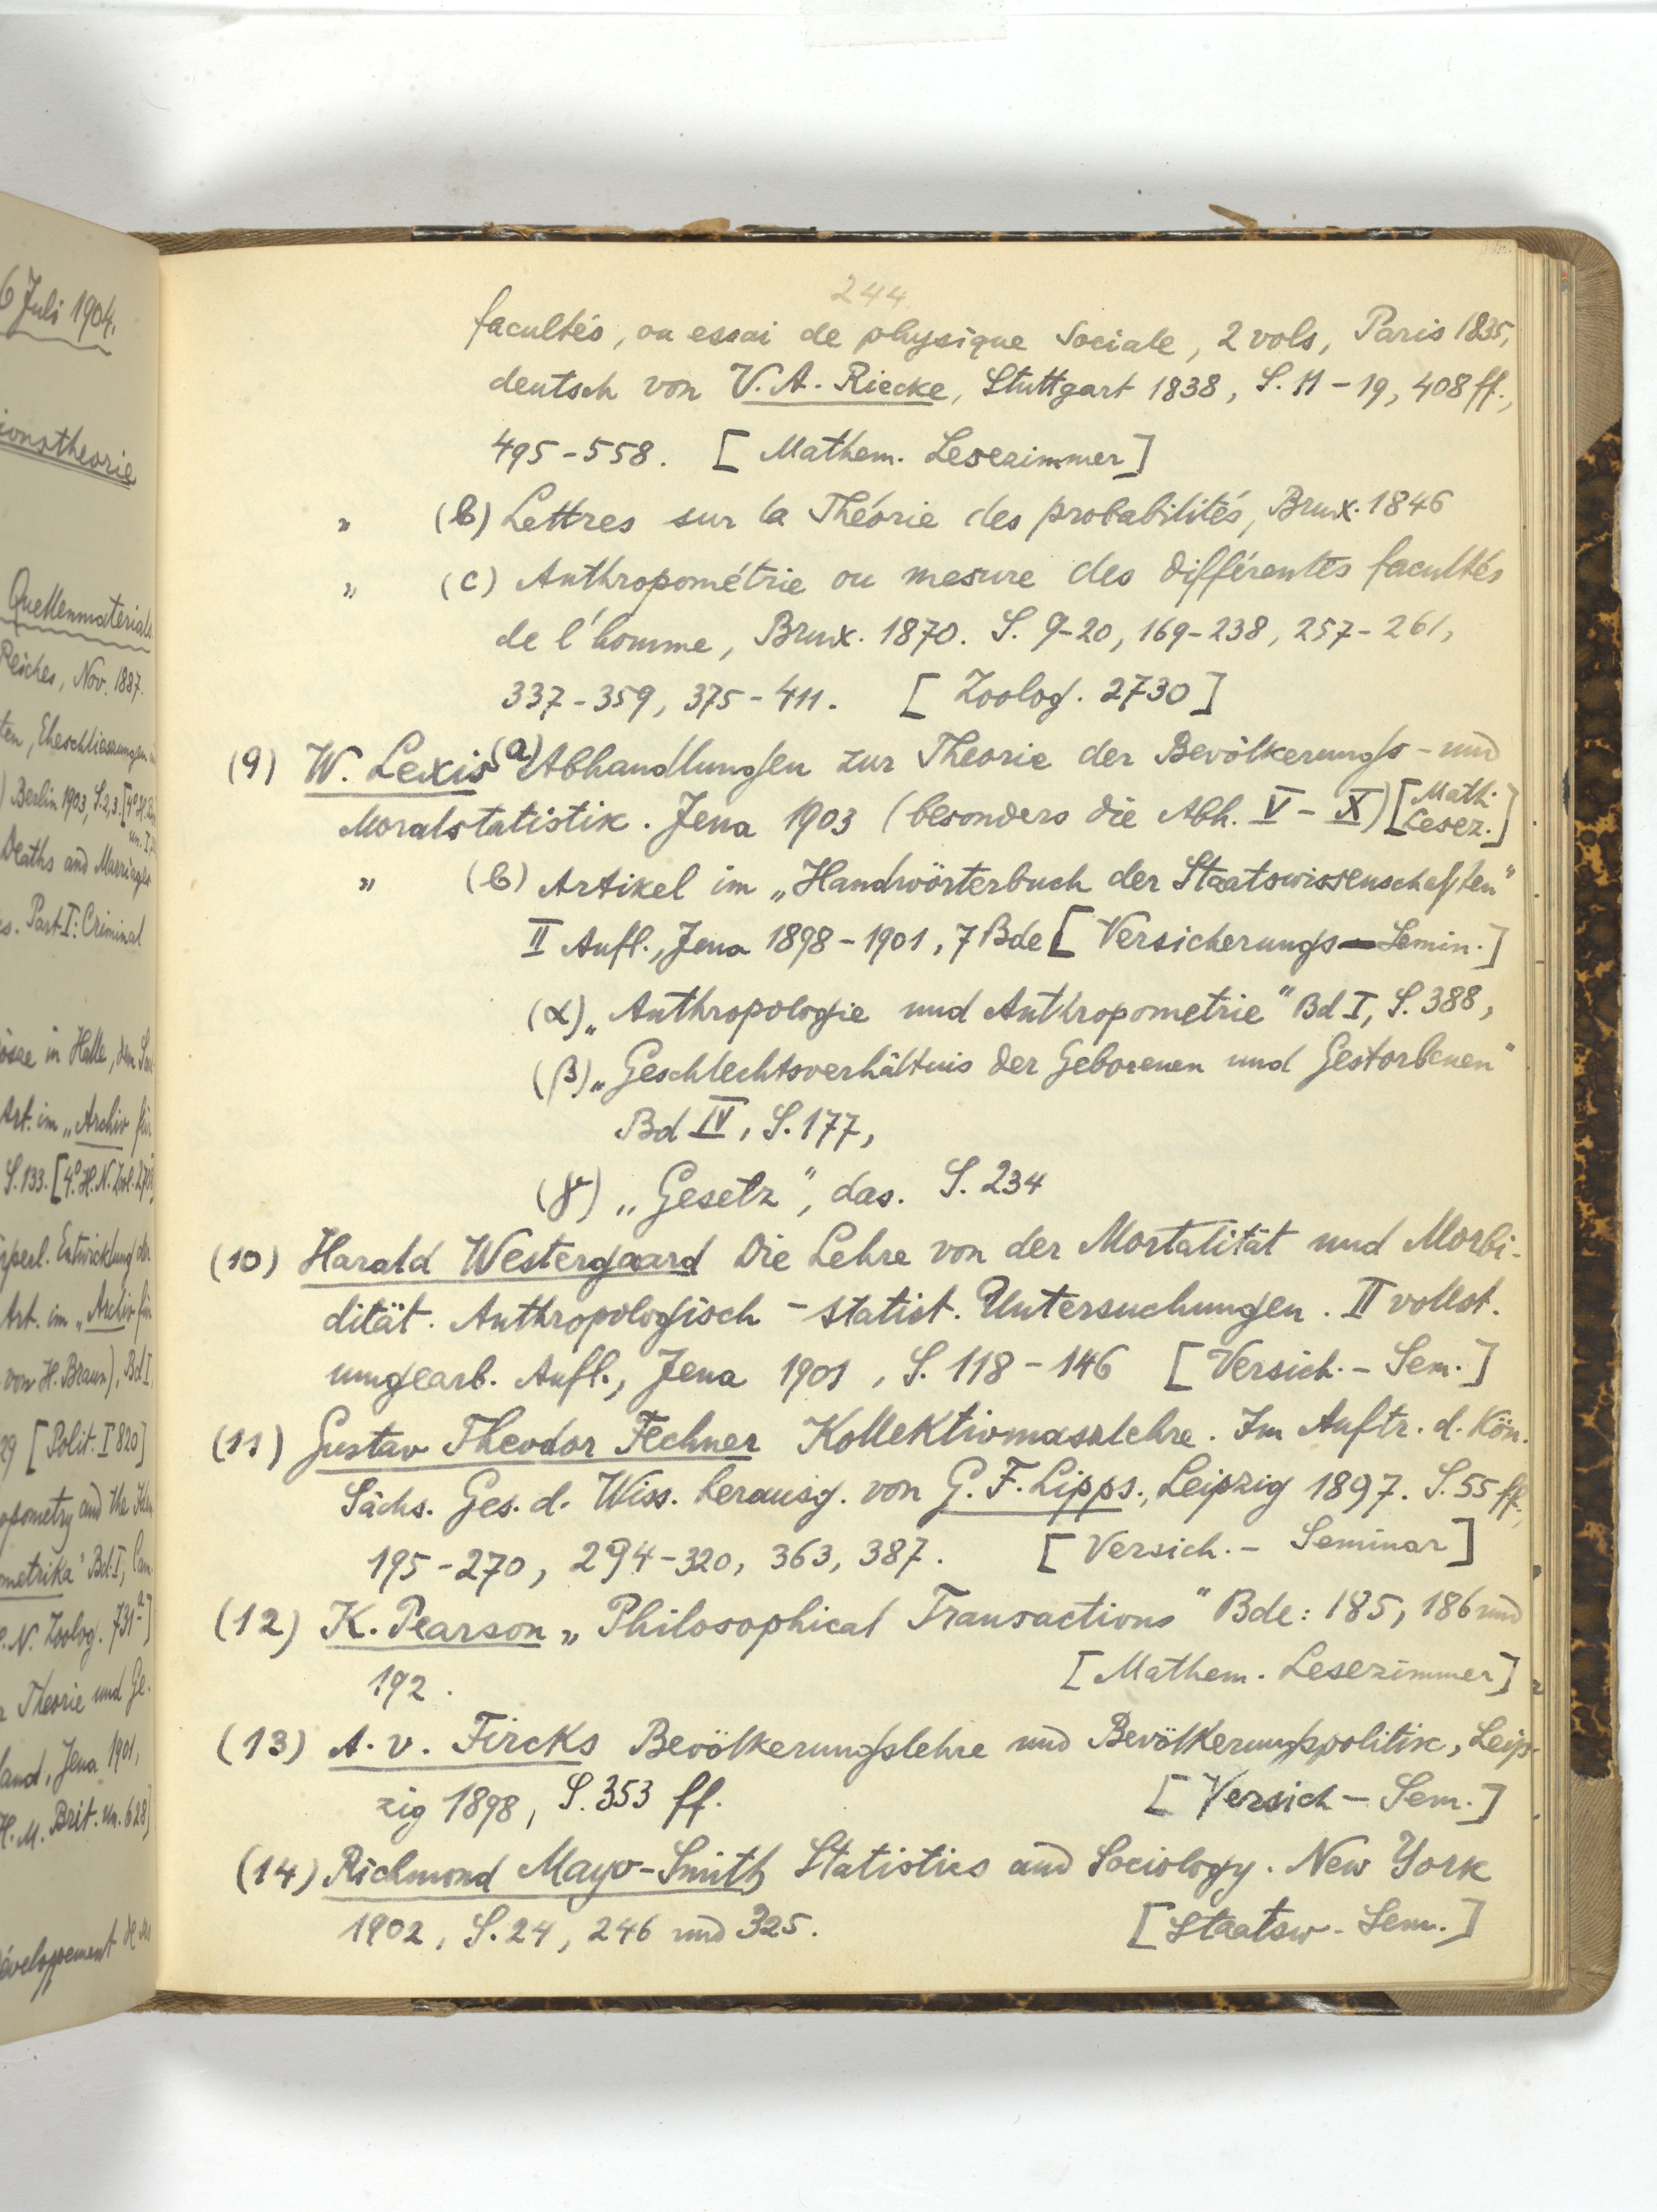 6 Juli 1904.
ionstheorie
Quellenmaterials
Reiches, Nov. 1887.
ten, Eheschliessungen
Berlin 1903, S. 2, 3.
Deaths and Marriages
Part I: Criminal
in Halle, den
Art. im „Archiv für
S. 133. [4° H. N. Zool.
perl. Entwicklung der
Art. im „Archiv für
von H. Braun), Bd I
29 [Polit. I 820]
ometry and the
metrika" Bd. I, Cam
N. Zoolog. 731a]
Theorie und Ge-
land, Jena 1901,
H. M. Brit. un. 628]
développement
244
facultés, ou essai de physique sociale, 2 vols, Paris 1835,
deutsch von V. A. Riecke, Stuttgart 1838, S. 11 - 19, 408 ff.,
495 - 558. [Mathem. Lesezimmer]
" (b) Lettres sur la Théorie des probabilités, Brux. 1846
" (c) Anthropométrie ou mesure des différentes facultés
de l'homme, Brux. 1870. S. 9-20, 169-238, 257-261,
337-359, 375-411. [Zoolog. 2730]
(9) W. Lexis (a) Abhandlungen zur Theorie der Bevölkerungs- und
Moralstatistik. Jena 1903 (besonders die Abh. V - X) [Math. Lesez.]
" (b) Artikel im „Handwörterbuch der Staatswissenschaften"
II Aufl., Jena 1898-1901, 7 Bde [Versicherungs-Semin.]
(α) „Anthropologie und Anthropometrie" Bd I, S. 388,
(β) „Geschlechtsverhältnis der Geborenen und Gestorbenen"
Bd IV, S. 177,
(γ) „Gesetz", das. S. 234
(10) Harald Westergaard Die Lehre von der Mortalität und Morbi-
dität. Anthropologisch - statist. Untersuchungen. II vollst.
umgearb. Aufl., Jena 1901, S. 118 - 146 [Versich. - Sem.]
(11) Gustav Theodor Fechner Kollektivmasslehre. Im Auftr. d. Kön.
Sächs. Ges. d. Wiss. herausg. von G. F. Lipps., Leipzig 1897. S. 55 ff.,
195-270, 294-320, 363, 387. [Versich. - Seminar]
(12) K. Pearson „Philosophical Transactions" Bde: 185, 186 und
192. [Mathem. Lesezimmer]
(13) A. v. Fircks Bevölkerungslehre und Bevölkerungspolitik, Leip-
zig 1898, S. 353 ff. [Versich - Sem.]
(14) Richmond Mayo-Smith Statistics and Sociology. New York
1902, S. 24, 246 und 325. [Staatsw - Sem.]